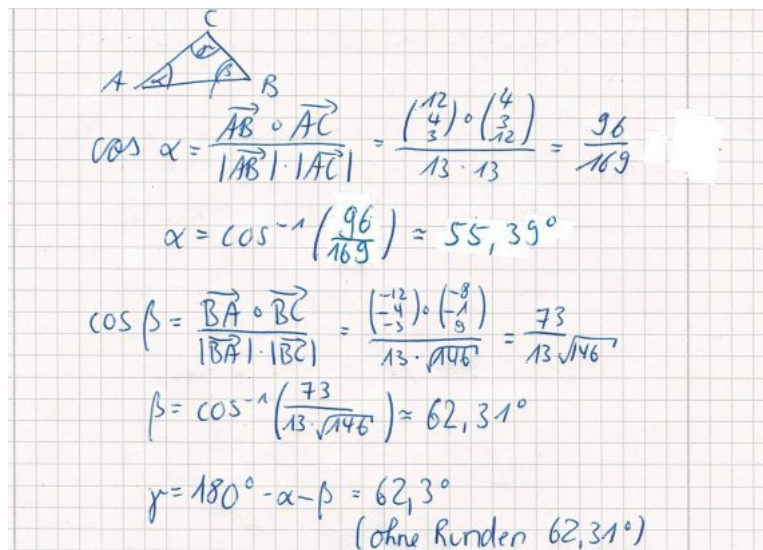 C
α γ β
A B
cos α = \frac{\overrightarrow{AB} ∘ \overrightarrow{AC}}{|\overrightarrow{AB}| · |\overrightarrow{AC}|} = \frac{\begin{pmatrix} 12 \\ 4 \\ 3 \end{pmatrix} ∘ \begin{pmatrix} 4 \\ 3 \\ 12 \end{pmatrix}}{13 · 13} = \frac{96}{169}
α = cos^{-1} \left( \frac{96}{169} \right) ≈ 55,39°
cos β = \frac{\overrightarrow{BA} ∘ \overrightarrow{BC}}{|\overrightarrow{BA}| · |\overrightarrow{BC}|} = \frac{\begin{pmatrix} -12 \\ -4 \\ -3 \end{pmatrix} ∘ \begin{pmatrix} -8 \\ -1 \\ 9 \end{pmatrix}}{13 · \sqrt{146}} = \frac{73}{13 \sqrt{146}}
β = cos^{-1} \left( \frac{73}{13 · \sqrt{146}} \right) ≈ 62,31°
γ = 180° - α - β = 62,3°
(ohne Runden 62,31°)